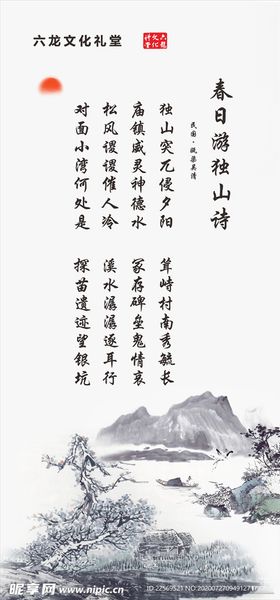 六龙文化礼堂
六龍文化禮堂
春日游独山诗
民国·瓯梁吴清
独山突兀侵夕阳
耸峙村南秀毓长
庙镇威灵神德水
冢存碑垒鬼情哀
松风谡谡催人冷
溪水潺潺逐耳行
对面小湾何处是
探苗遗迹望银坑
昵享网 www.nipic.cn
ID:22569521 NO:20200727094912